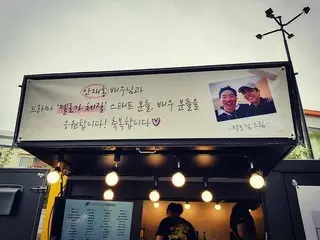 안재홍 배우님과
드라마 '멜로가 체질' 스태프 분들, 배우 분들을
응원합니다! 축복합니다♡